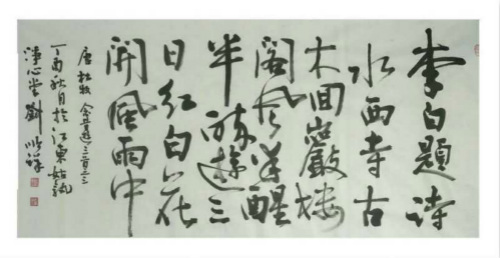 李白題詩
水西寺古
木回巖樓
閣風半醒
半醉遊三
日紅白花
開風雨中
唐 杜牧 念昔遊三首之三
丁酉秋月於江東姑孰
淨心堂 劉